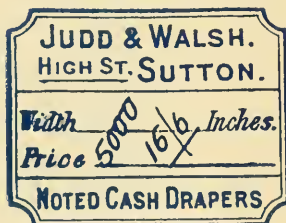 JUDD & WALSH.
HIGH ST. SUTTON.
Width 5000 Inches.
Price 16/6
NOTED CASH DRAPERS